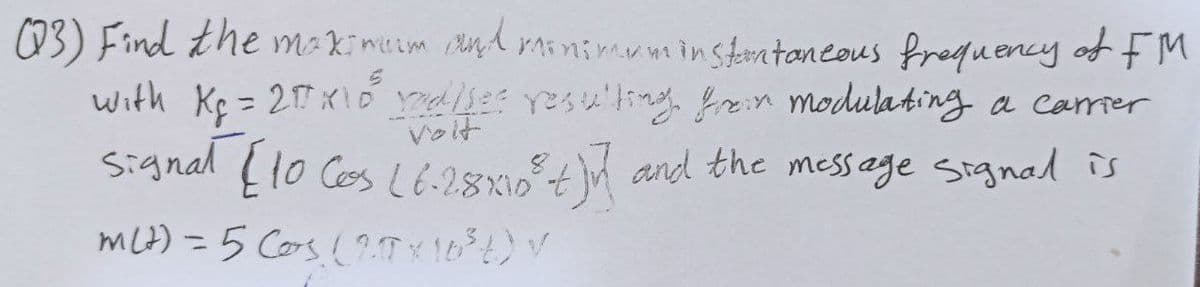 Q3) Find the maximum and minimum instantaneous frequency of FM
with Kf = 2π×10⁵ rad/sec/volt resulting from modulating a carrier
signal [10 Cos (6.28×10⁸t)V] and the message signal is
m(t) = 5 Cos (2π×10³t) V